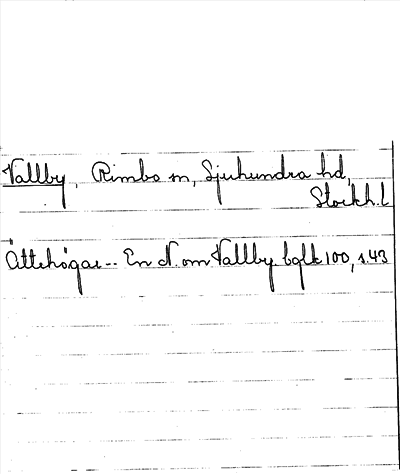 Vallby, Rimbo sn, Sjuhundra hd,
Stockh.l
Ättehögar -- En N. om Vallby. bglk 100, s.43